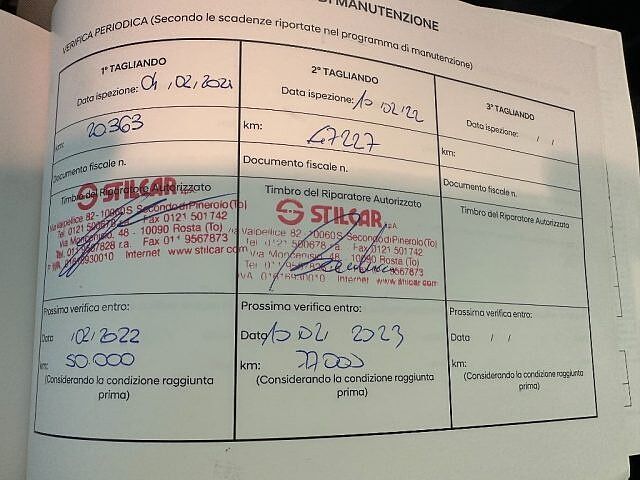 DI MANUTENZIONE
VERIFICA PERIODICA (Secondo le scadenze riportate nel programma di manutenzione)
1° TAGLIANDO
Data ispezione: 04,02,2021
km: 20363
Documento fiscale n.
Timbro del Riparatore Autorizzato
STILCAR
Via Valpellice 82 - 10060 S. Secondo di Pinerolo (To)
Tel. 0121 500678 r.a. Fax 0121 501742
Via Moncenisio, 48 - 10090 Rosta (To)
Tel. 011 9567828 r.a. Fax 011 9567873
Internet www.stilcar.com
Prossima verifica entro:
Data /02/2022
km: 50.000
(Considerando la condizione raggiunta
prima)
2° TAGLIANDO
Data ispezione: 10 02 22
km: 47227
Documento fiscale n.
Timbro del Riparatore Autorizzato
STILCAR S.p.A.
Valpellice 82 - 10060 S. Secondo di Pinerolo (To)
500678 r.a. Fax 0121 501742
48 - 10090 Rosta (To)
Internet www.stilcar.com
Prossima verifica entro:
Data 10 02 2023
km: 77000
(Considerando la condizione raggiunta
prima)
3° TAGLIANDO
Data ispezione: / /
km:
Documento fiscale n.
Timbro del Riparatore Autorizzato
Prossima verifica entro:
Data / /
km:
(Considerando la condizione raggiunta
prima)